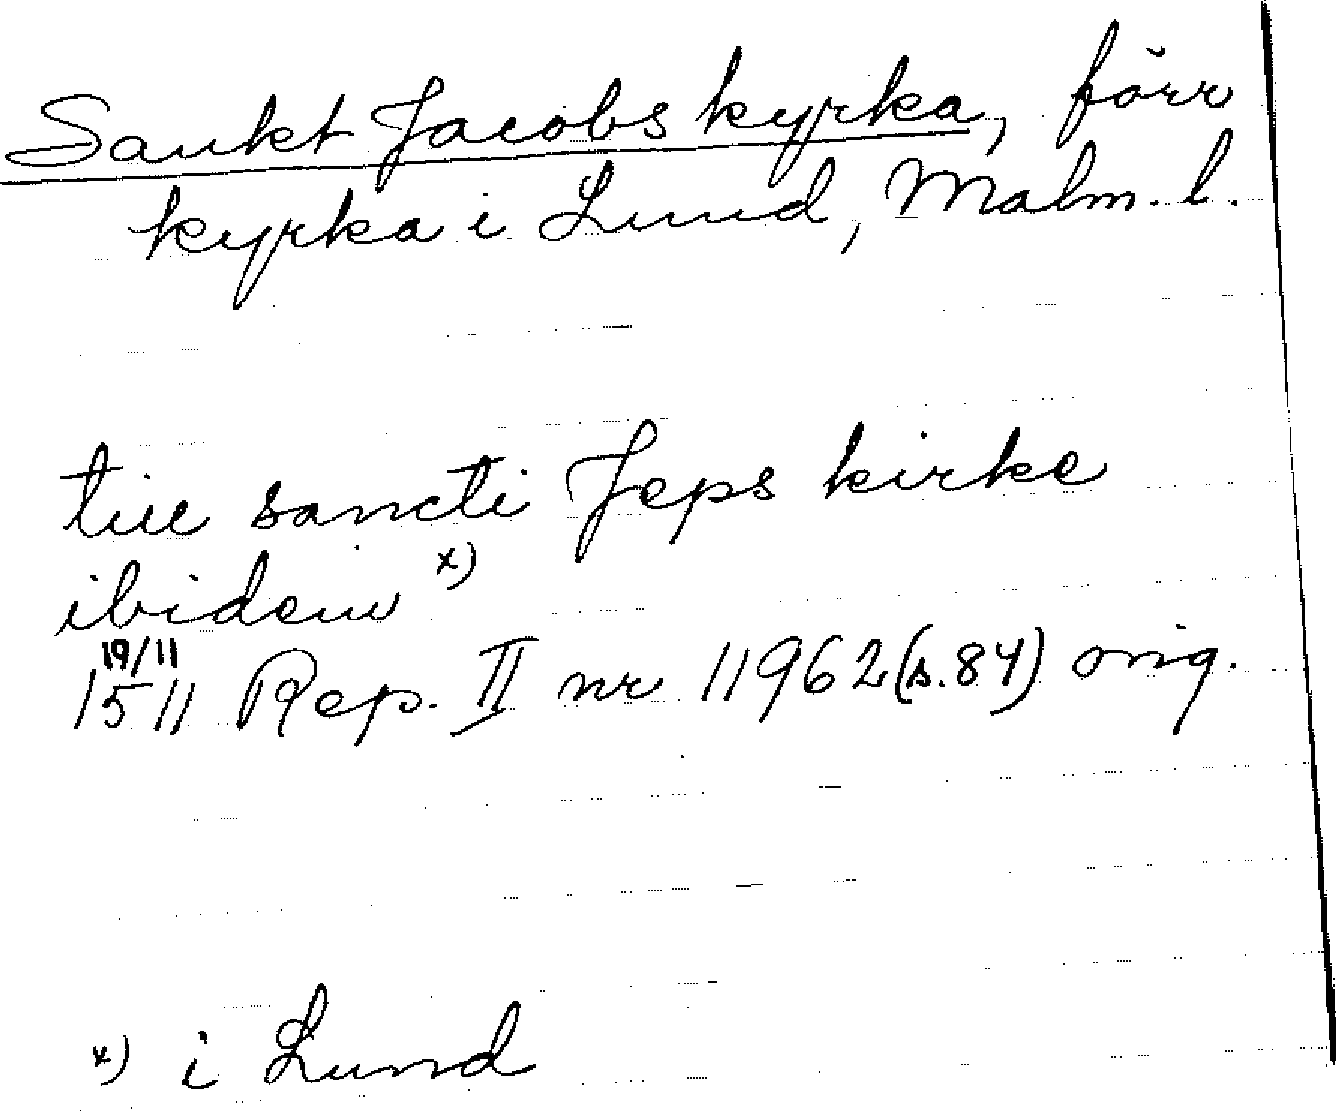 Sankt Jacobs kyrka, förr
kyrka i Lund, Malm. l.
till sancti Jeps kirke
ibidem x)
19/11
1511 Rep. II nr 11962 (s. 84) orig.
x) i Lund